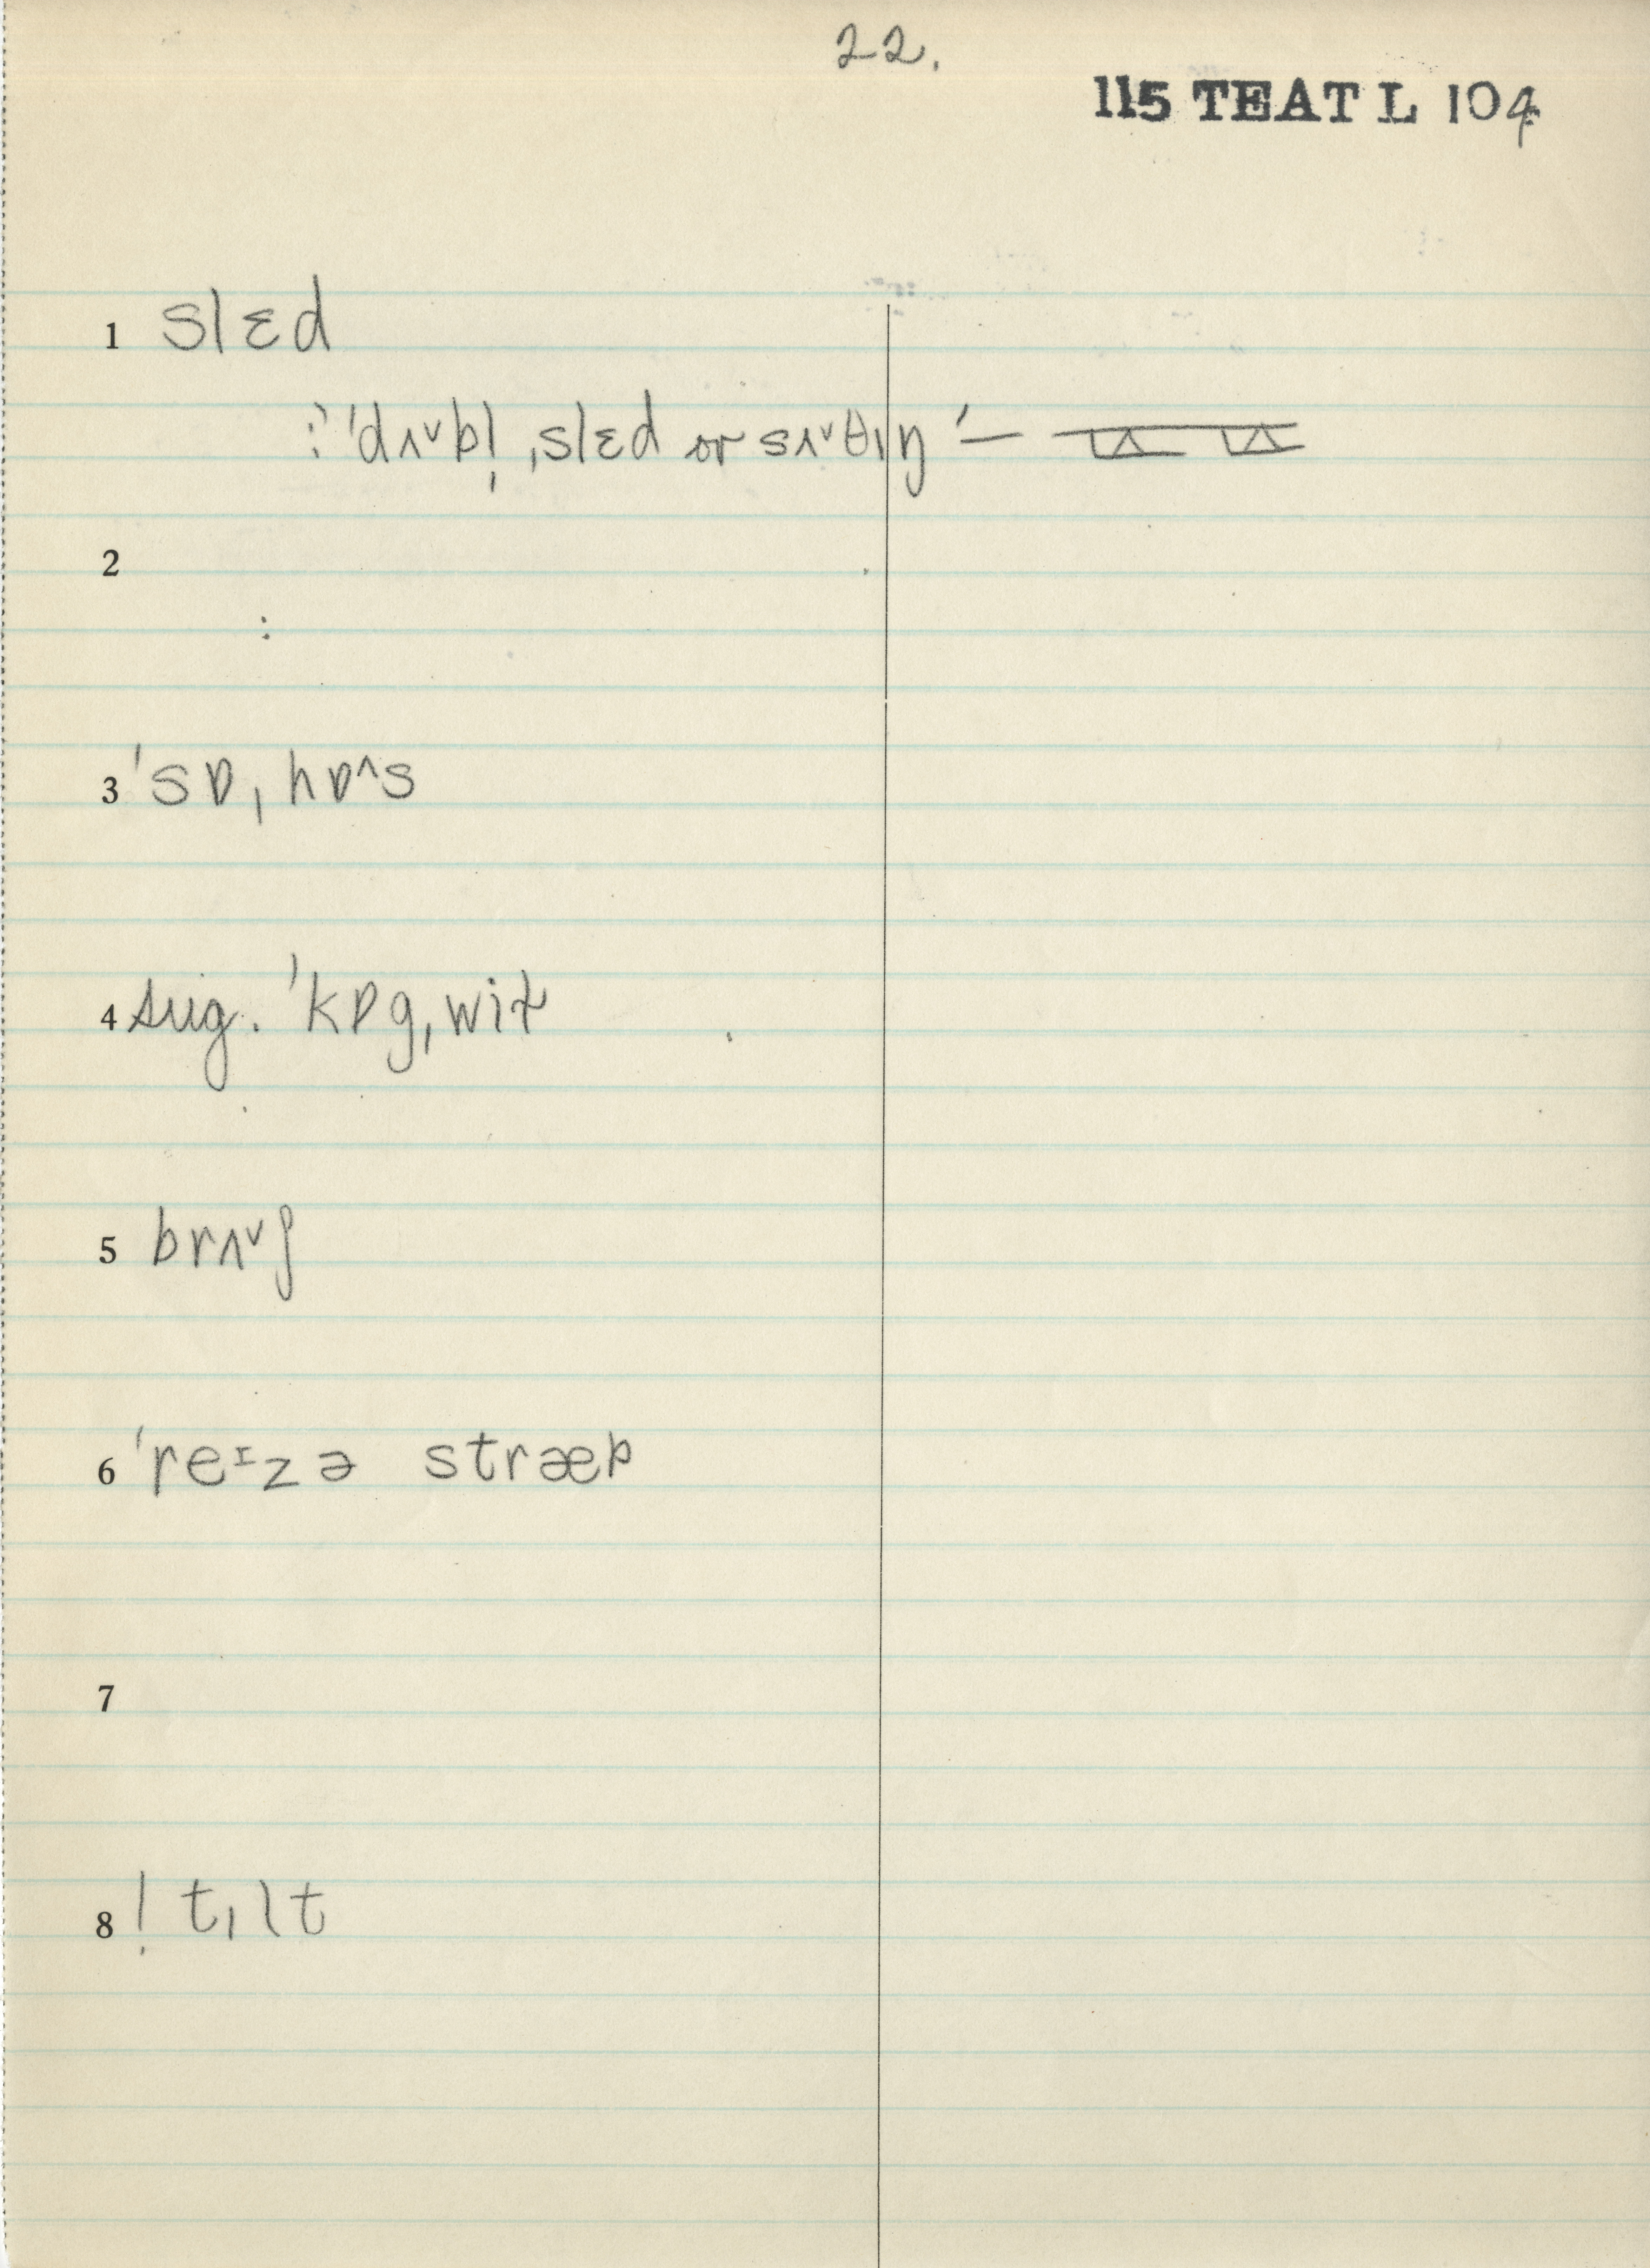 22.
115 TEAT L 104
1 slɛd
:' 'dʌ˅bl̩ ˌslɛd or sʌ˅θɪŋ' —
2
:
3 'sɒˌhɒ˄s
4 sug. 'kɒgˌwiɫ
5 brʌ˅ʃ
6 'reᶦzə stræp
7
8 ! tɪlt